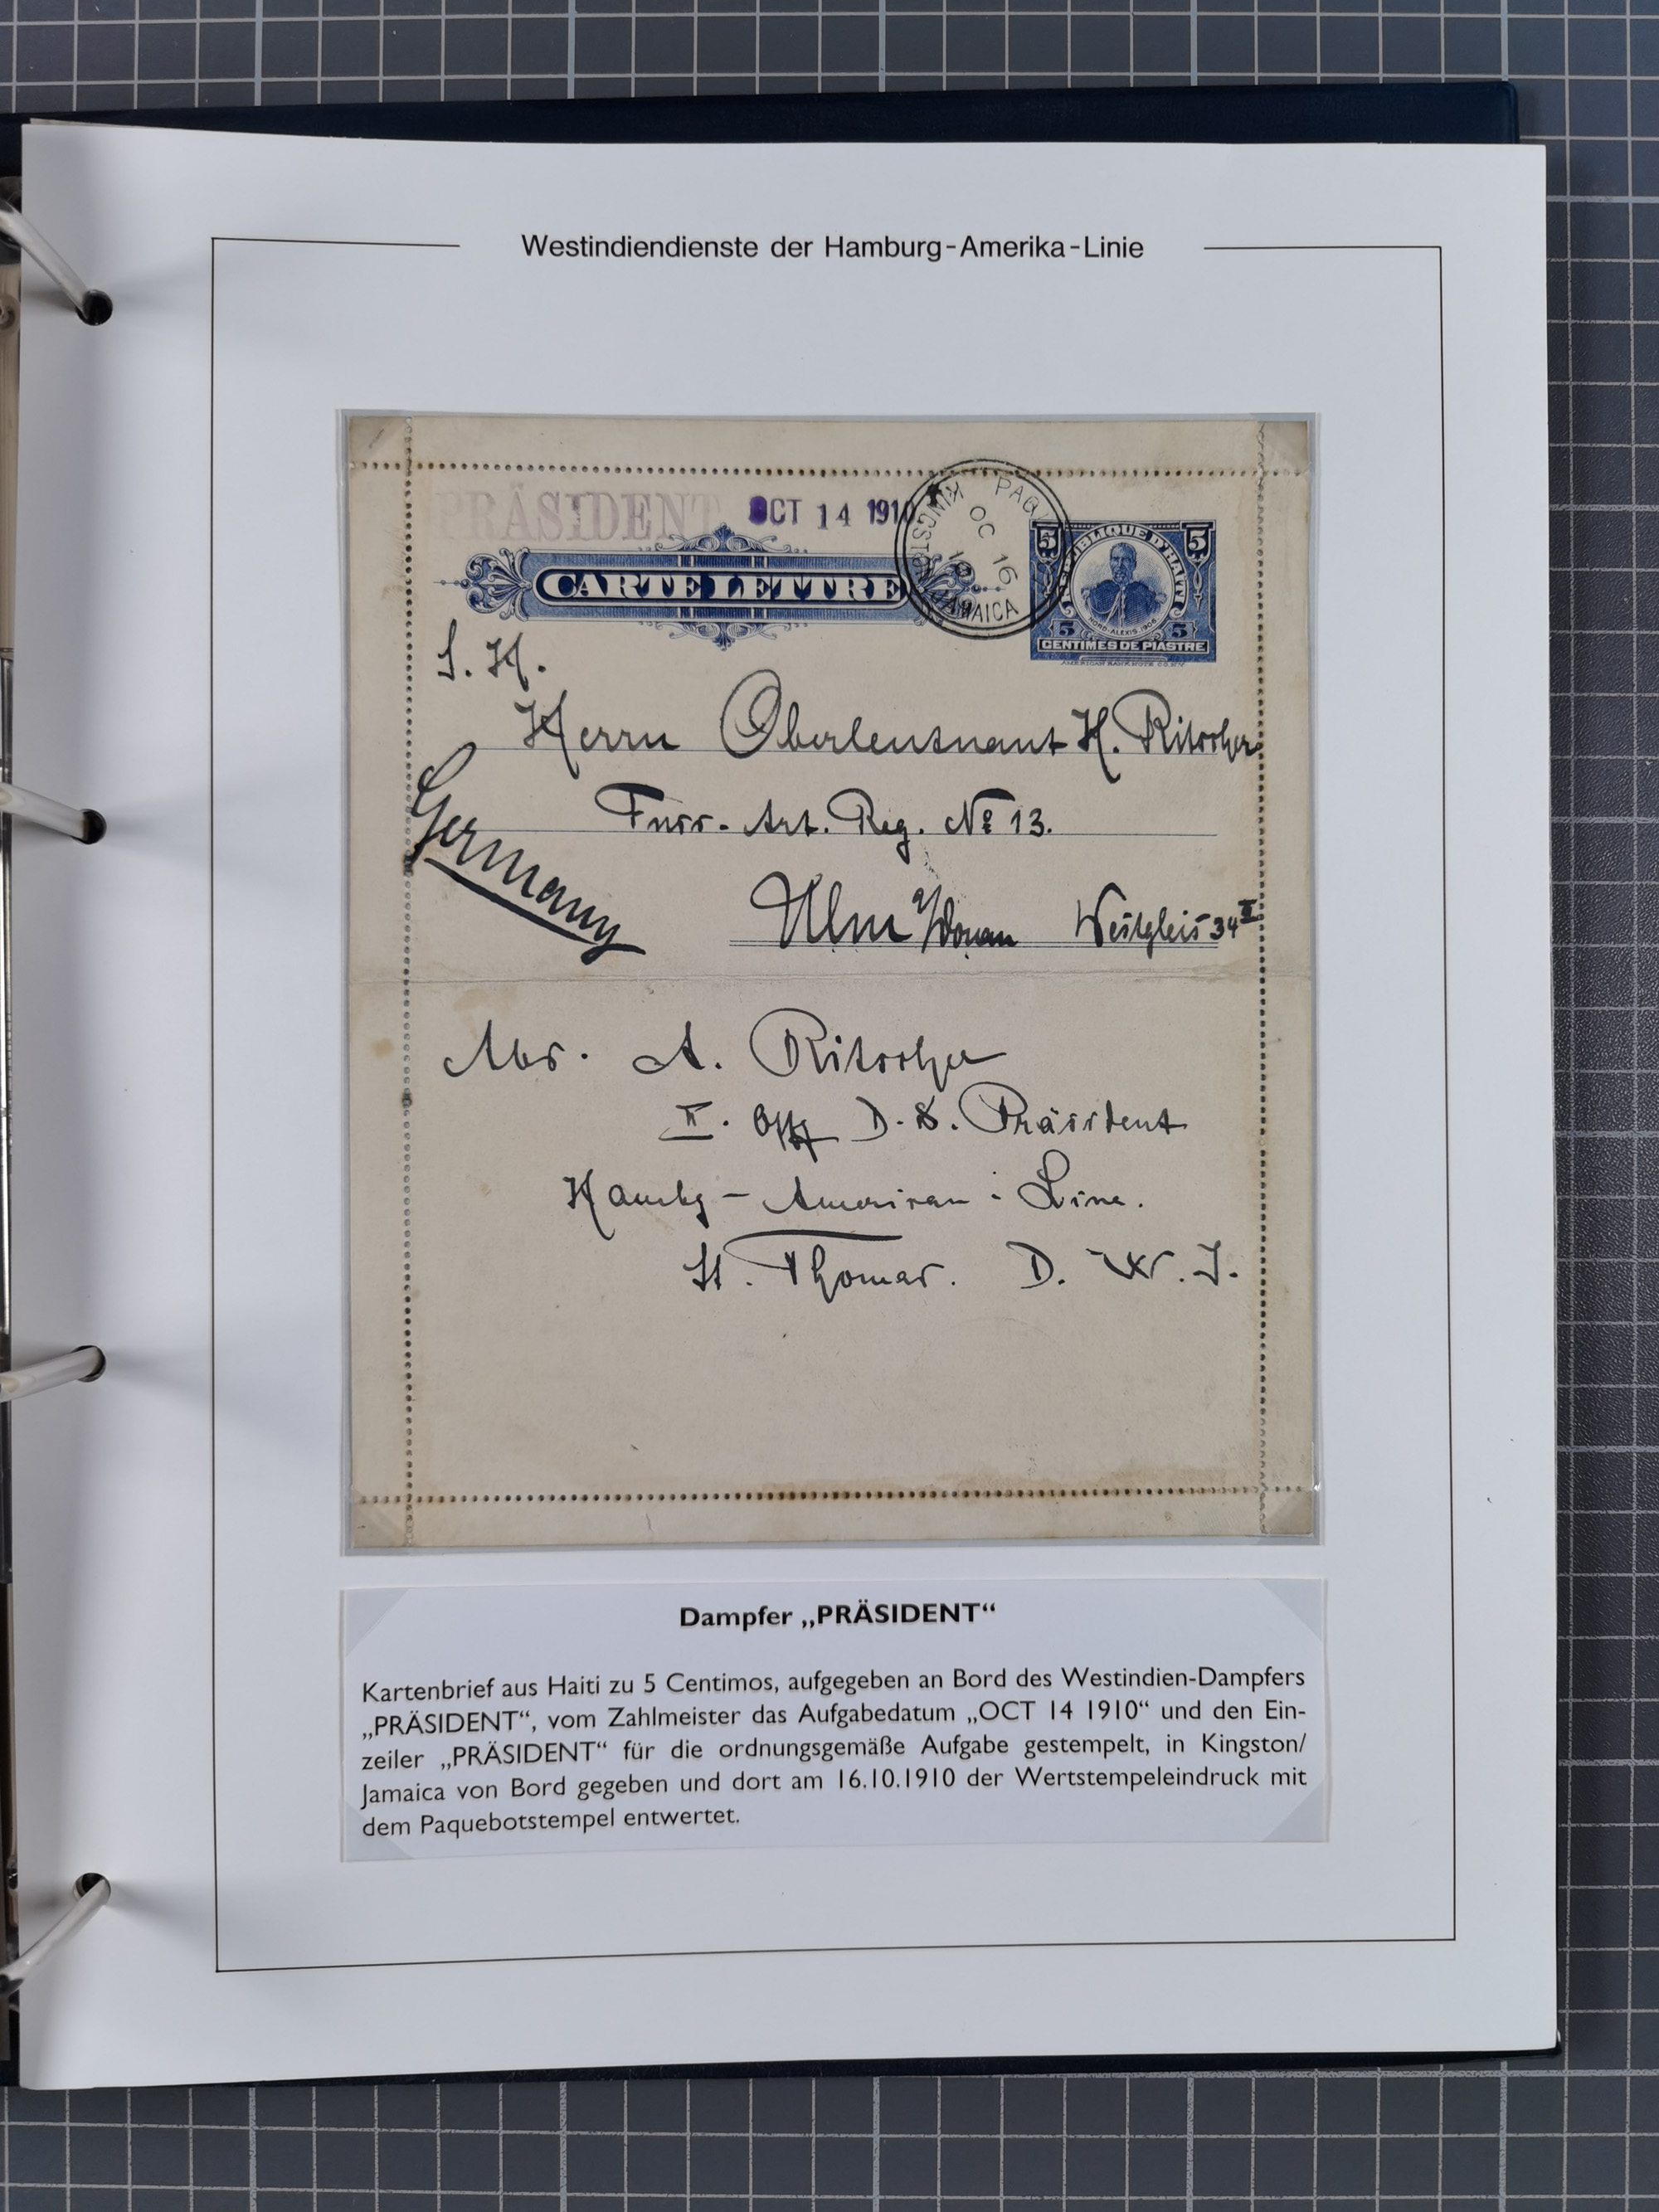 Westindiendienste der Hamburg-Amerika-Linie
PRÄSIDENT OCT 14 1910
KINGSTON JAMAICA PAQ
OC 16
10
CARTE LETTRE
5 5
REPUBLIQUE D'HAITI
NORD-ALEXIS 1906
5 5
CENTIMES DE PIASTRE
AMERICAN BANK NOTE CO. N.Y.
S. H.
Herrn Oberleutnant H. Ritscher
Fuss-Art. Reg. No 13.
Germany
Ulm a/Donau 34 II
Abs. A. Ritscher
II. Off D. S. Präsident
Hambg-American-Line.
St. Thomas. D. W. I.
Dampfer „PRÄSIDENT“
Kartenbrief aus Haiti zu 5 Centimos, aufgegeben an Bord des Westindien-Dampfers
„PRÄSIDENT“, vom Zahlmeister das Aufgabedatum „OCT 14 1910“ und den Ein-
zeiler „PRÄSIDENT“ für die ordnungsgemäße Aufgabe gestempelt, in Kingston/
Jamaica von Bord gegeben und dort am 16.10.1910 der Wertstempeleindruck mit
dem Paquebotstempel entwertet.